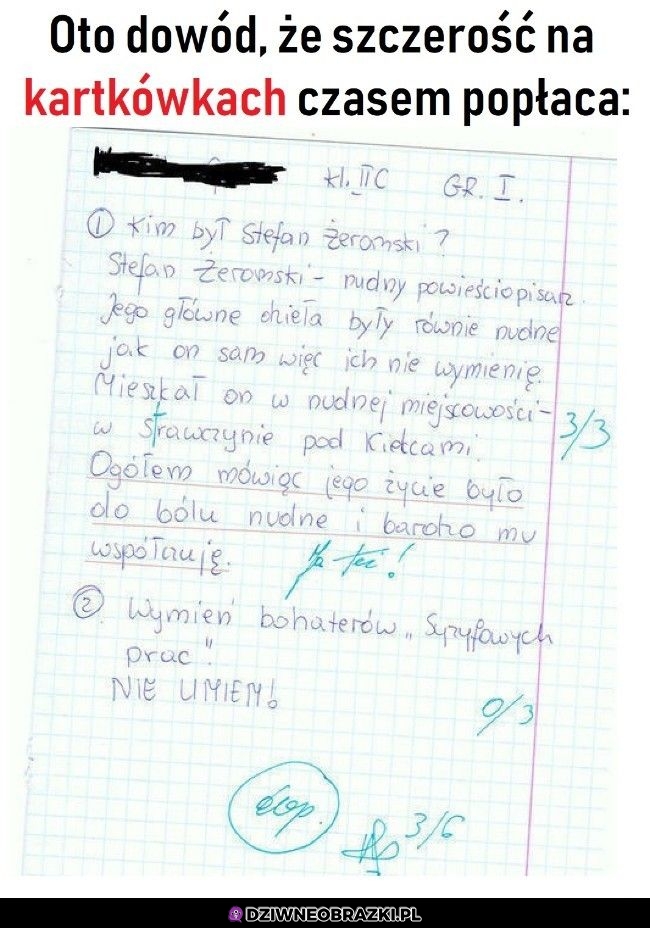 Oto dowód, że szczerość na
kartkówkach czasem popłaca:
kl. II C GR. I.
① Kim był Stefan Żeromski?
Stefan Żeromski - nudny powieściopisarz.
Jego główne dzieła były równie nudne
jak on sam więc ich nie wymienię.
Mieszkał on w nudnej miejscowości -
w Strawczynie pod Kielcami.
3/3
Ogółem mówiąc jego życie było
do bólu nudne i bardzo mu
współczuję. Ja też!
② Wymień bohaterów „Syzyfowych
prac".
NIE UMIEM!
0/3
dop.
3/6
DZIWNEOBRAZKI.PL